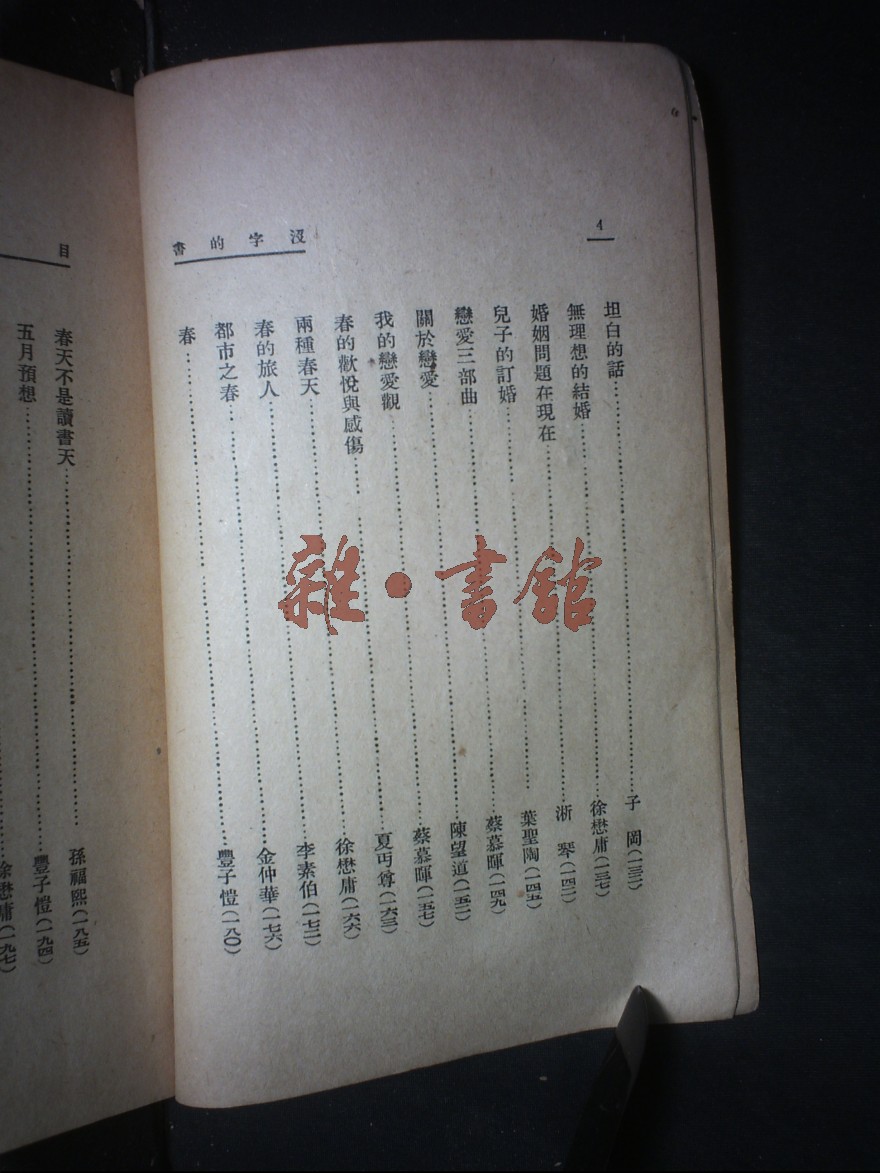 1
沒字的書
坦白的話……子岡(一三二)
無理想的結婚……徐懋庸(一三七)
婚姻問題在現在……浙琴(一四二)
兒子的訂婚……葉聖陶(一四五)
戀愛三部曲……蔡慕暉(一四九)
關於戀愛……陳望道(一五二)
我的戀愛觀……蔡慕暉(一五七)
春的歡悅與感傷……夏丏尊(一六三)
兩種春天……徐懋庸(一六六)
春的旅人……李素伯(一七二)
都市之春……金仲華(一七六)
春……豐子愷(一八〇)
目
春天不是讀書天……孫福熙(一八五)
五月預想……豐子愷(一九四)
徐懋庸(一九七)
雜·書館